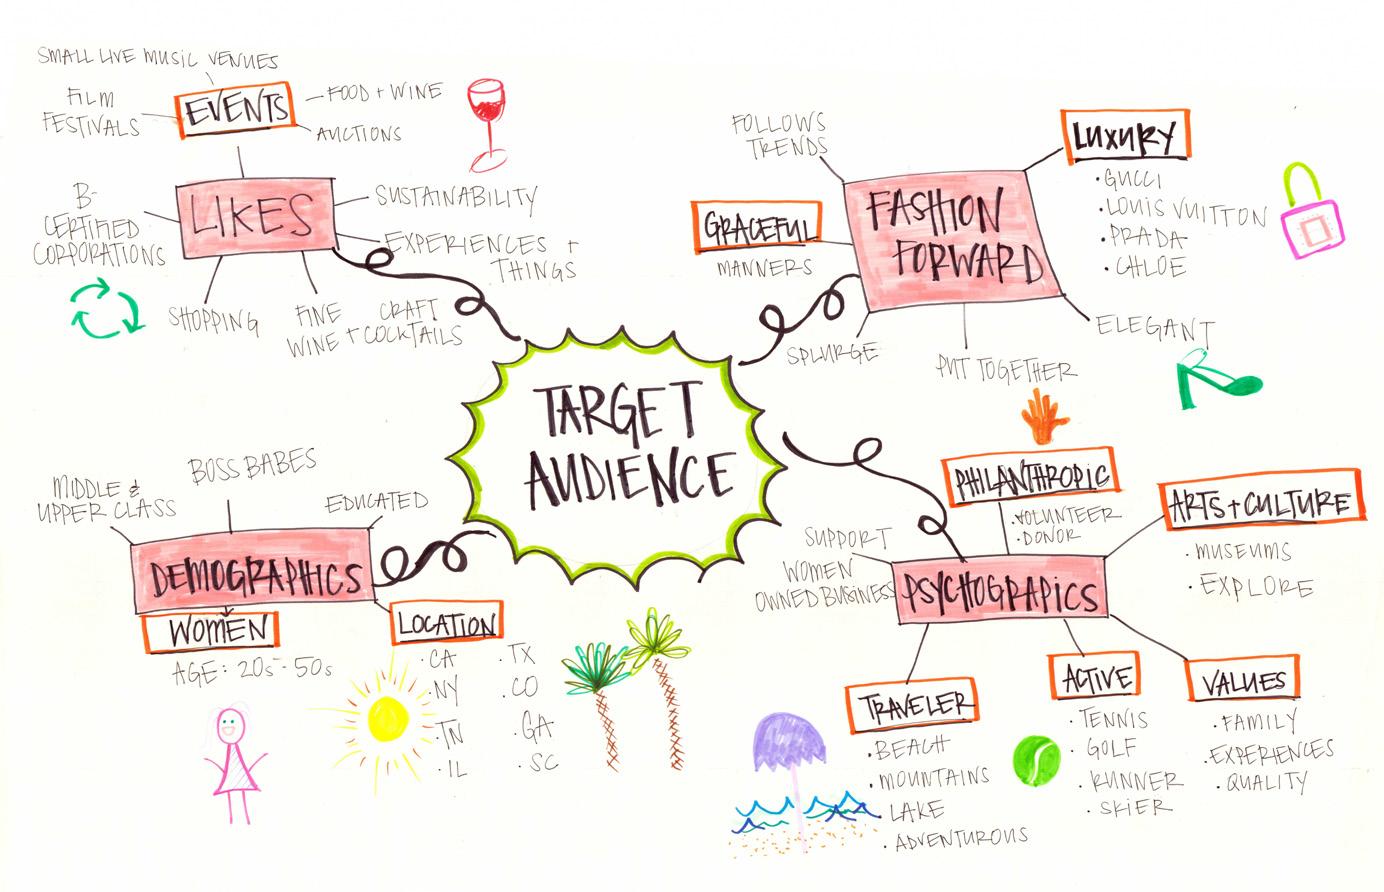 SMALL LIVE MUSIC VENUES
FILM
FESTIVALS
EVENTS
FOOD + WINE
AUCTIONS
LIKES
B-
CERTIFIED
CORPORATIONS
SUSTAINABILITY
EXPERIENCES +
THINGS
SHOPPING
FINE
WINE +
CRAFT
COCKTAILS
FOLLOWS
TRENDS
LUXURY
• GUCCI
• LOUIS VUITTON
• PRADA
• CHLOE
GRACEFUL
MANNERS
FASHION
FORWARD
SPLURGE
PUT TOGETHER
ELEGANT
TARGET
AUDIENCE
MIDDLE &
UPPER CLASS
BOSS BABES
EDUCATED
DEMOGRAPHICS
WOMEN
AGE: 20s - 50s
LOCATION
• CA
• NY
• TN
• IL
• TX
• CO
• GA
• SC
PHILANTHROPIC
• VOLUNTEER
• DONOR
ARTS + CULTURE
• MUSEUMS
• EXPLORE
SUPPORT
WOMEN
OWNED BUSINESS
PSYCHOGRAPICS
TRAVELER
• BEACH
• MOUNTAINS
• LAKE
• ADVENTUROUS
ACTIVE
• TENNIS
• GOLF
• RUNNER
• SKIER
VALUES
• FAMILY
• EXPERIENCES
• QUALITY